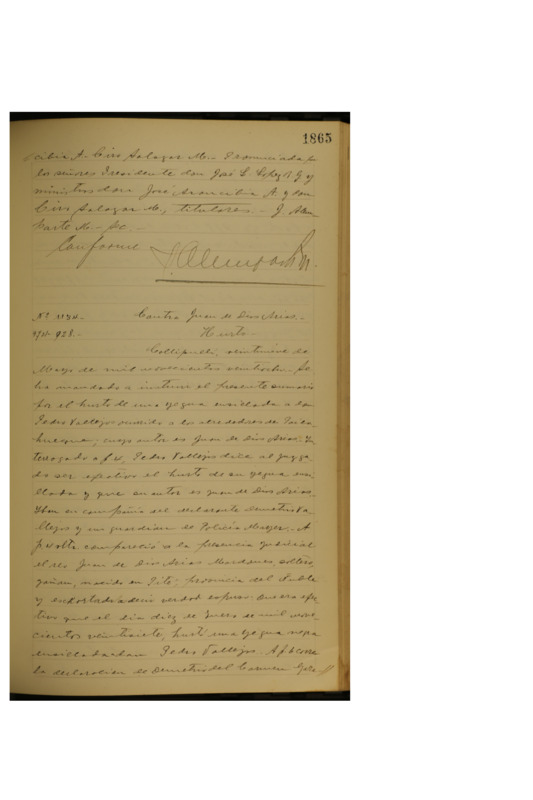 1865
cibia A. Ciro Salazar M.- Pronunciada por
los señores Presidente don José L. Lopez y
ministros don José Arancibia A. y don
Ciro Salazar M., titulares.- J.
Sc.-
Conforme
Nº 1134.- Contra Juan de Dios Arias.-
928.- Hurto.-
Collipulli, veintinueve de
Mayo de mil novecientos veintiocho.- Se
ha mandado a instruir el presente sumario
por el hurto de una yegua ensillada a don
Pedro Vallejos ocurrido a los alrededores de
cuyo autor es Juan de Dios Arias. In
terrogado a fs Pedro Vallejos dice al juzga
do ser efectivo el hurto de su yegua ensi
llada y que su autor es Juan de Dios Arias
en compañia del declarante Demetrio Va
llejos y un guardian de Policia .- A
fs vlta compareció a la presencia judicial
el reo Juan de Dios Arias soltero,
gañan, nacido en provincia del Ñuble
y exhortado a decir verdad expuso: Que era efec
tivo que el dia diez de Enero de mil nove
cientos veintisiete, hurtó una yegua
ensillada a don Pedro Vallejos. A fs 6 corre
la declaracion de Demetrio del Carmen